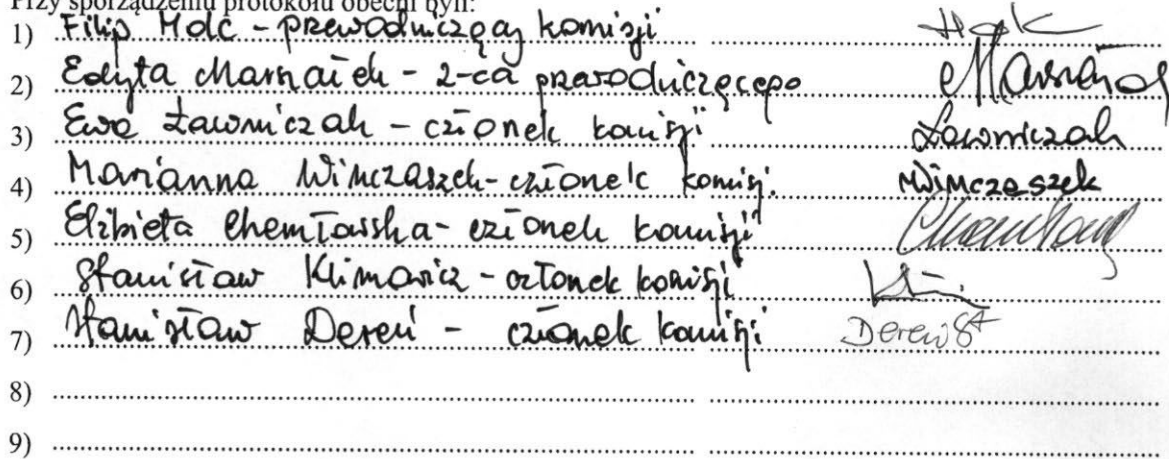 Przy sporządzeniu protokołu obecni byli:
1) Filip Molć - przewodniczący komisji
2) Edyta Marszałek - z-ca przewodniczącego
3) Ewa Ławniczak - członek komisji Ławniczak
4) Marianna Wimczaszek - członek komisj. MWimczaszek
5) Elżbieta Chemławska - członek komisji
6) Stanisław Klimowicz - członek komisji
7) Stanisław Dereń - członek komisji Dereń St
8)
9)